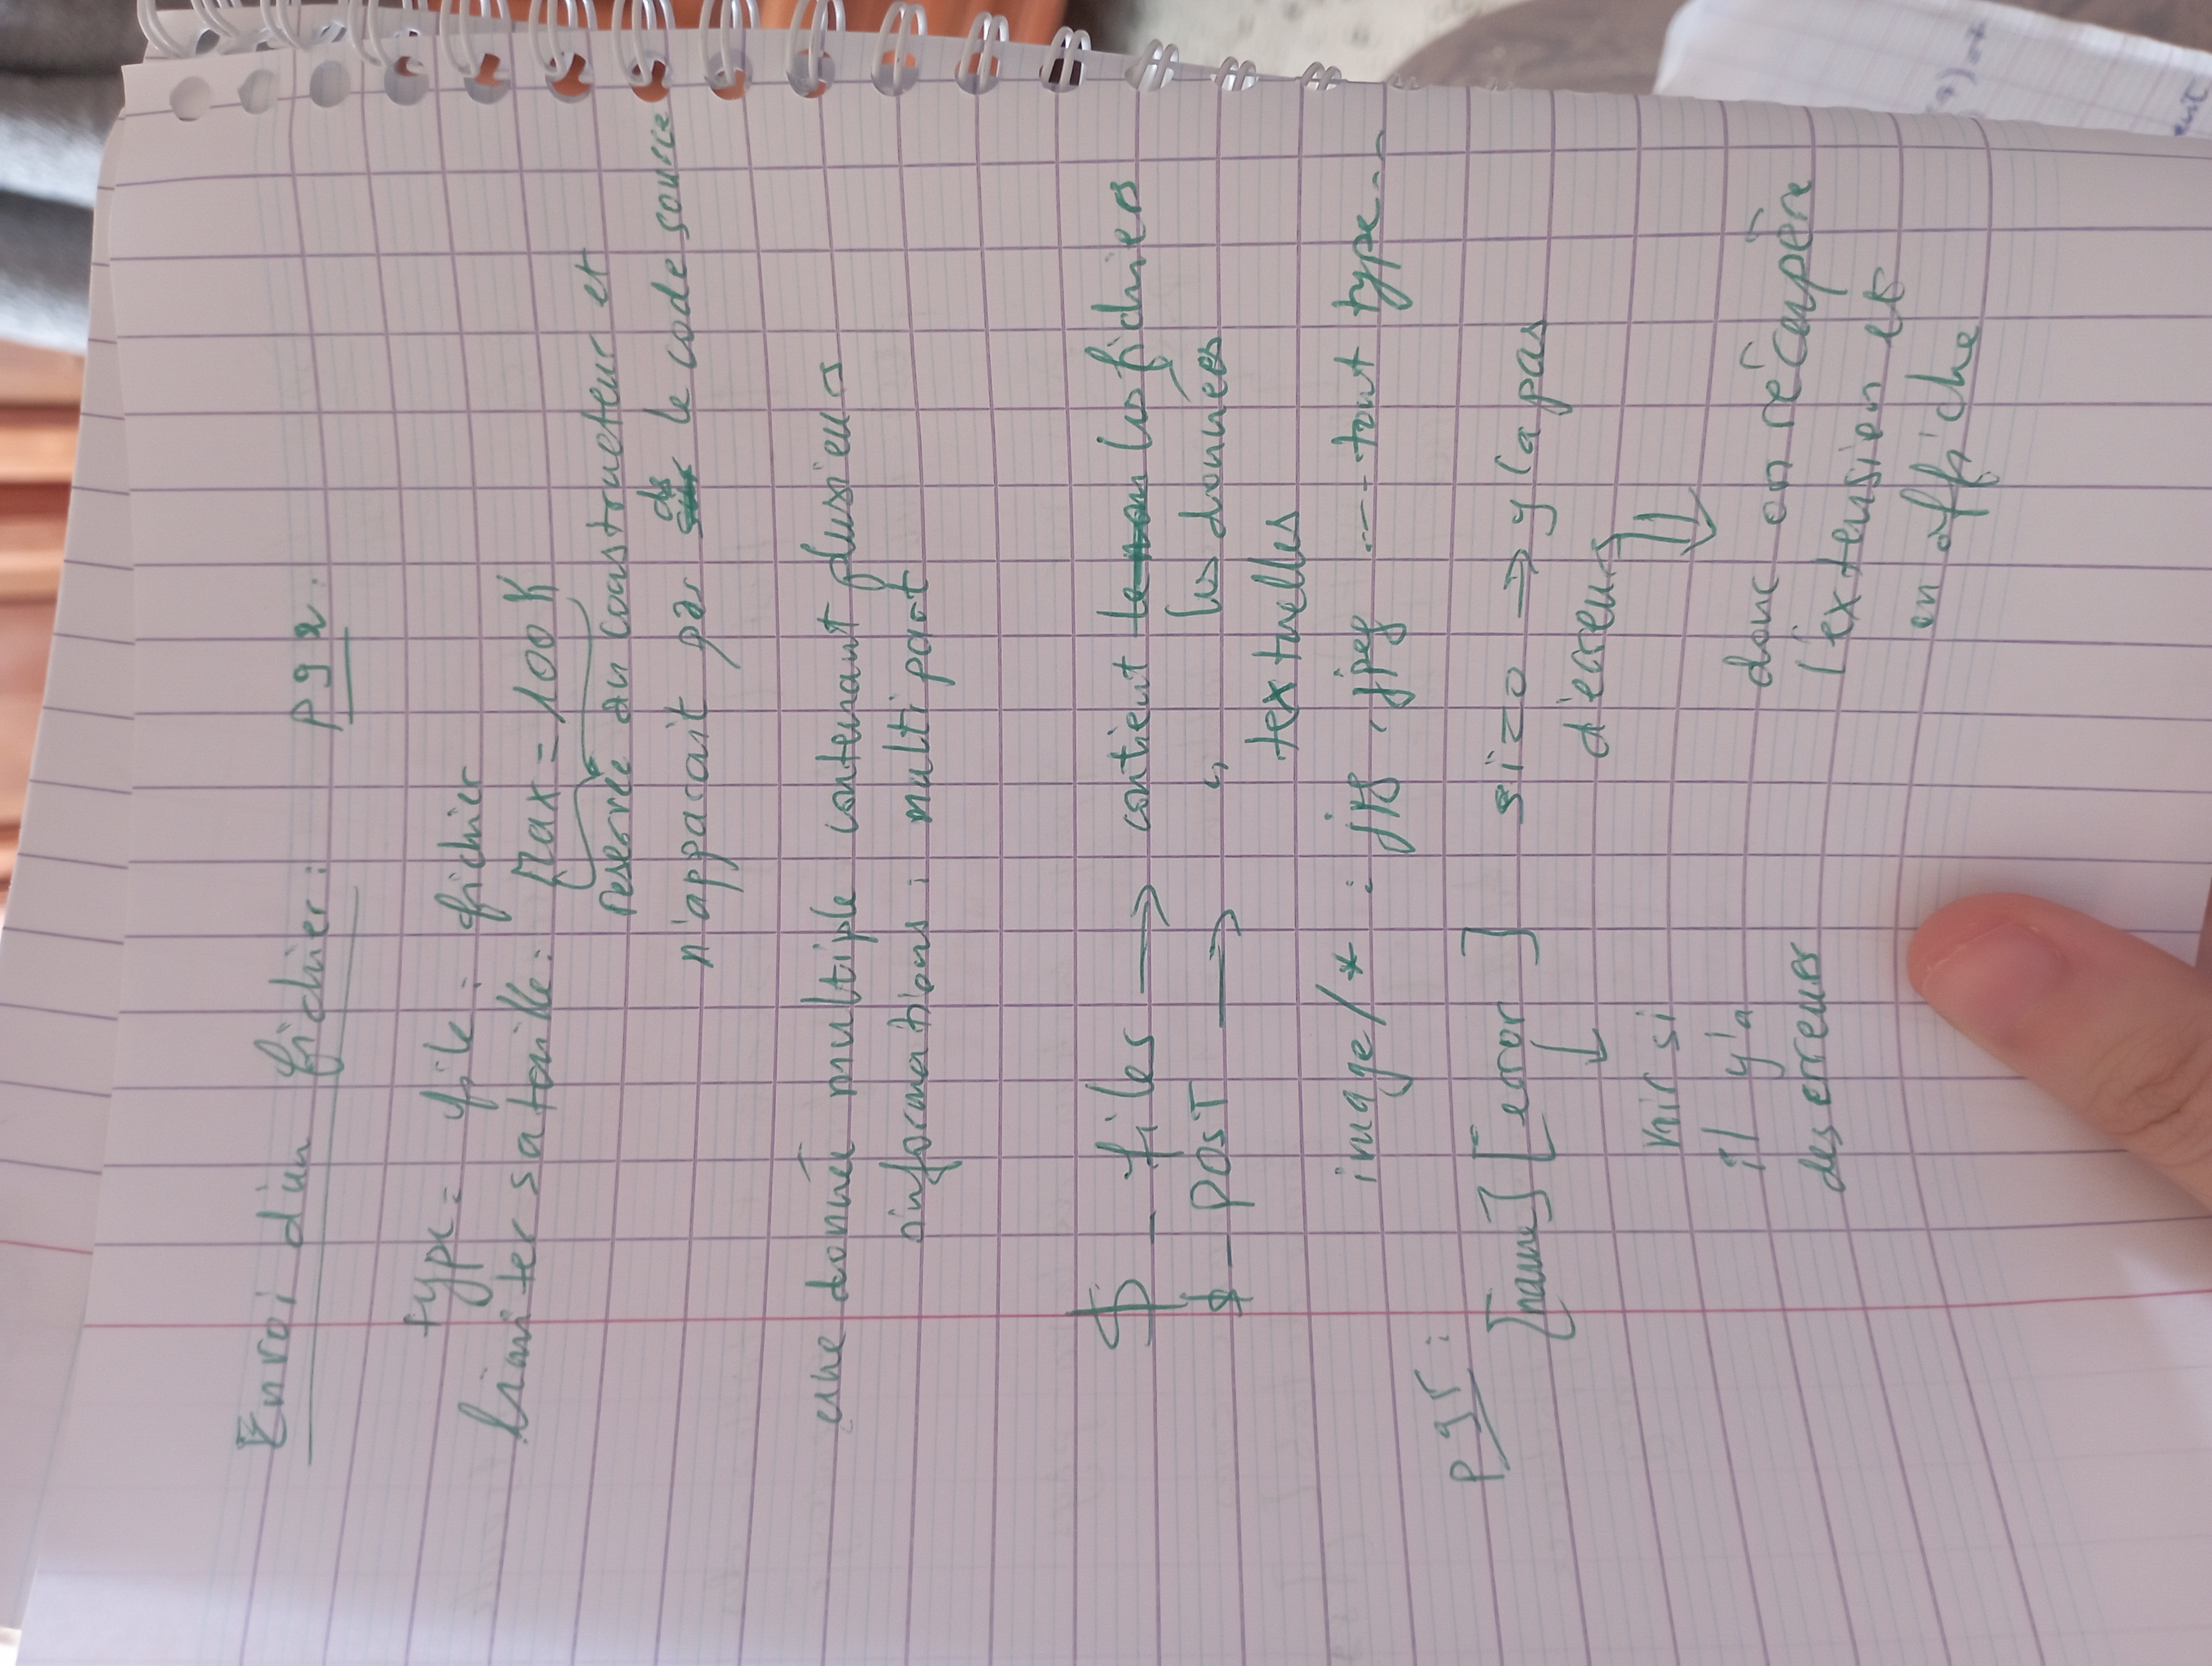 Envoi d'un fichier : pg 2.
type = file : fichier
limiter sa taille : Max = 100 K
reservée au constructeur et
n'apparait pas ds le code source
une donnée multiple contenant plusieurs
informations : multipart
$ _ files → contient les fichiers
$ _ POST → les données
textuelles
image/* : jpg, jpeg ---- tout type...
pg 5 :
[name] [error ] si = 0 ⇒ y'a pas
d'erreurs
voir si
il y'a
des erreurs
donc on récupère
l'extension et
on affiche